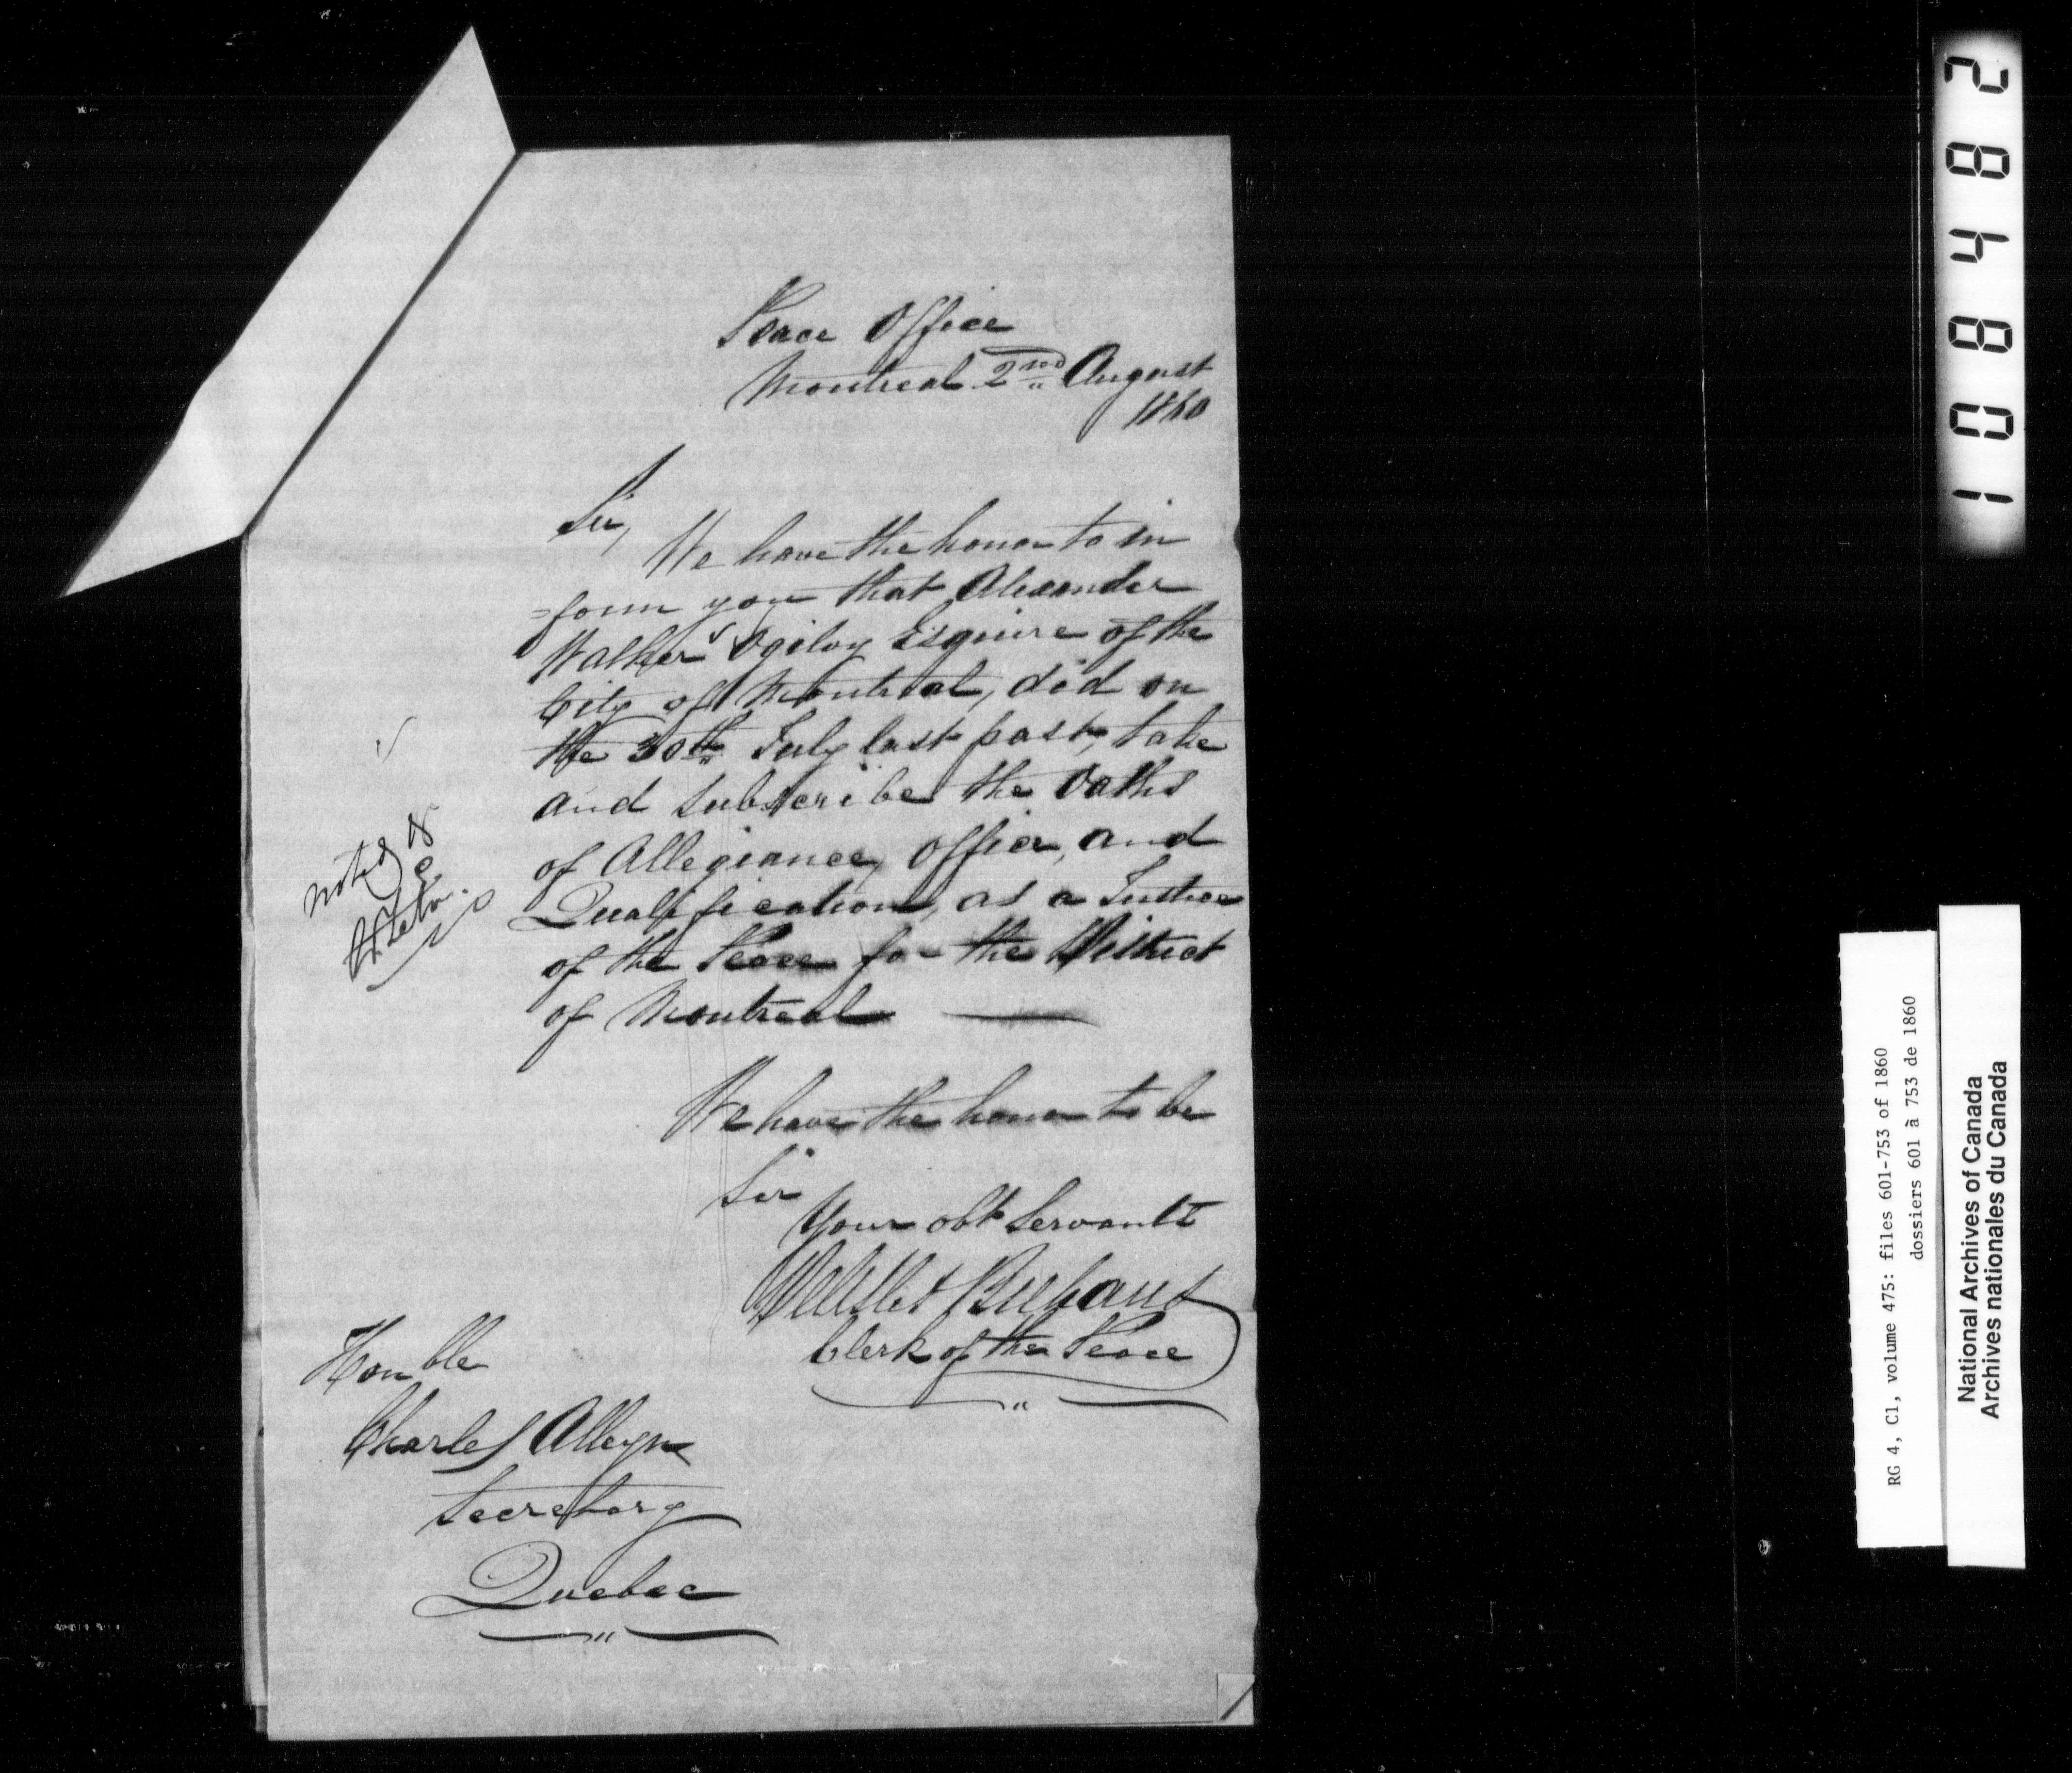 Peace Office
Montreal 2nd August
1860
Sir,
We have the honor to in
=form you that Alexander
Walker Ogilvy Esquire of the
City of Montreal, did on
the 30th July last past, take
and subscribe the Oaths
of Allegiance, Office, and
Qualification, as a Justice
of the Peace for the District
of Montreal
We have the honor to be
Sir
Your obt Servants
Delisle & Brehaut
Clerk of the Peace
Honble
Charles Alleyn
Secretary
Quebec
noted
108482
RG 4, C1, volume 475: files 601-753 of 1860
dossiers 601 à 753 de 1860
National Archives of Canada
Archives nationales du Canada